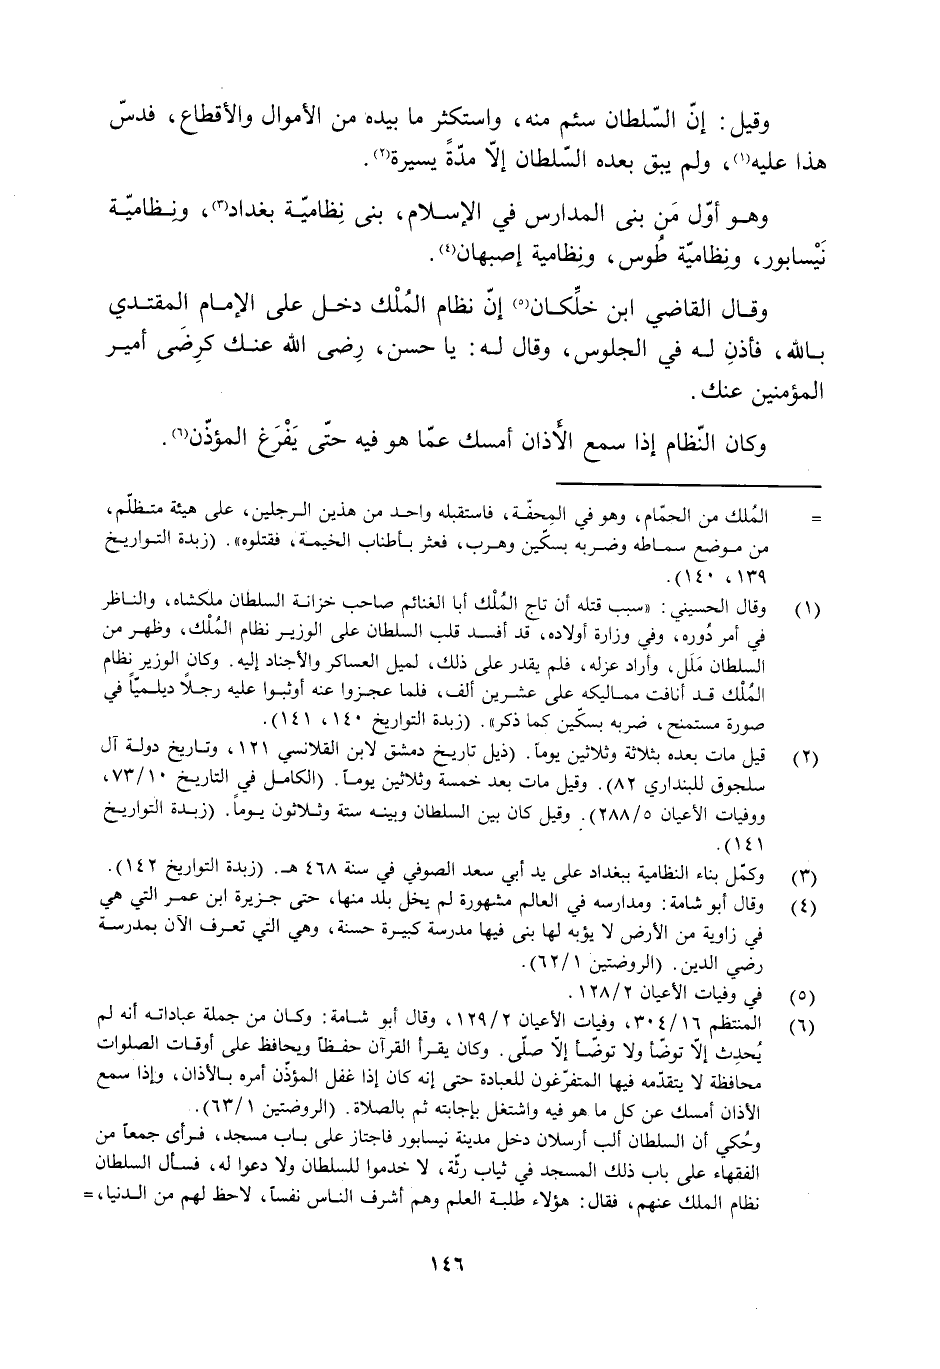 وقيل: إنّ السّلطان سئم منه، واستكثر ما بيده من الأموال والأقطاع، فدسّ
هذا عليه(١)، ولم يبق بعده السّلطان إلّا مدّةً يسيرة(٢).
وهو أوّل مَن بنى المدارس في الإسلام، بنى نِظاميّة بغداد(٣)، ونِظاميّة
نَيْسابور، ونِظاميّة طُوس، ونِظامية إصبهان(٤).
وقال القاضي ابن خلِّكان(٥) إنّ نظام المُلْك دخل على الإمام المقتدي
بالله، فأذن له في الجلوس، وقال له: يا حسن، رضى الله عنك كرِضَى أمير
المؤمنين عنك.
وكان النّظام إذا سمع الأَذان أمسك عمّا هو فيه حتّى يَفْرَغ المؤذّن(٦).
= المُلك من الحمّام، وهو في المِحفّة، فاستقبله واحد من هذين الرجلين، على هيئة متظلّم،
من موضع سماطه وضربه بسكّين وهرب، فعثر بأطناب الخيمة، فقتلوه». (زبدة التواريخ
١٣٩، ١٤٠).
(١) وقال الحسيني: «سبب قتله أن تاج المُلْك أبا الغنائم صاحب خزانة السلطان ملكشاه، والناظر
في أمر دُوره، وفي وزارة أولاده، قد أفسد قلب السلطان على الوزير نظام المُلْك، وظهر من
السلطان مَلَل، وأراد عزله، فلم يقدر على ذلك، لميل العساكر والأجناد إليه. وكان الوزير نظام
المُلْك قد أنافت مماليكه على عشرين ألف، فلما عجزوا عنه أوثبوا عليه رجلاً ديلميّاً في
صورة مستمنح، ضربه بسكّين كما ذكر». (زبدة التواريخ ١٤٠، ١٤١).
(٢) قيل مات بعده بثلاثة وثلاثين يوماً. (ذيل تاريخ دمشق لابن القلانسي ١٢١، وتاريخ دولة آل
سلجوق للبنداري ٨٢). وقيل مات بعد خمسة وثلاثين يوماً. (الكامل في التاريخ ٧٣/١٠،
ووفيات الأعيان ٢٨٨/٥). وقيل كان بين السلطان وبينه ستة وثلاثون يوماً. (زبدة التواريخ
١٤١).
(٣) وكمّل بناء النظامية ببغداد على يد أبي سعد الصوفي في سنة ٤٦٨ هـ. (زبدة التواريخ ١٤٢).
(٤) وقال أبو شامة: ومدارسه في العالم مشهورة لم يخل بلد منها، حتى جزيرة ابن عمر التي هي
في زاوية من الأرض لا يؤبه لها بنى فيها مدرسة كبيرة حسنة، وهي التي تعرف الآن بمدرسة
رضي الدين. (الروضتين ٦٢/١).
(٥) في وفيات الأعيان ١٢٨/٢.
(٦) المنتظم ٣٠٤/١٦، وفيات الأعيان ١٢٩/٢، وقال أبو شامة: وكان من جملة عباداته أنه لم
يُحدِث إلّا توضّأ ولا توضّأ إلّا صلّى. وكان يقرأ القرآن حفظاً ويحافظ على أوقات الصلوات
محافظة لا يتقدّمه فيها المتفرّغون للعبادة حتى إنه كان إذا غفل المؤذّن أمره بالأذان، وإذا سمع
الأذان أمسك عن كل ما هو فيه واشتغل بإجابته ثم بالصلاة. (الروضتين ٦٣/١).
وحُكي أن السلطان ألب أرسلان دخل مدينة نيسابور فاجتاز على باب مسجد، فرأى جمعاً من
الفقهاء على باب ذلك المسجد في ثياب رثّة، لا خدموا للسلطان ولا دعوا له، فسأل السلطان
نظام الملك عنهم، فقال: هؤلاء طلبة العلم وهم أشرف الناس نفساً، لاحظ لهم من الدنيا، =
١٤٦